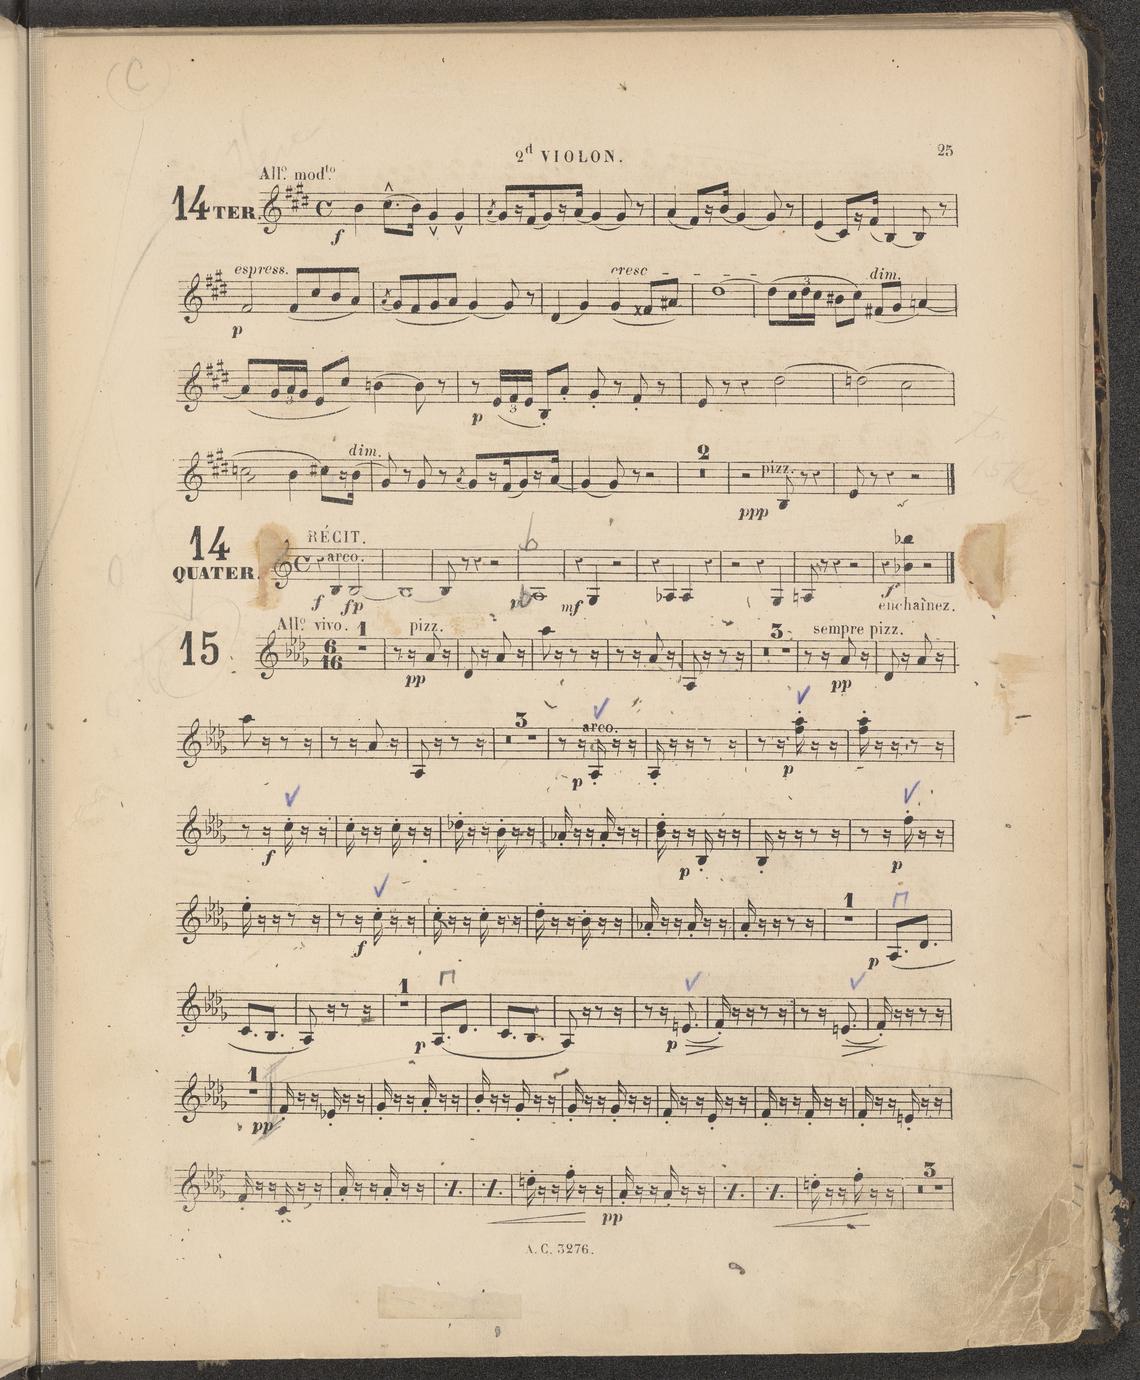 C
2d VIOLON.
25
All° modto
14 TER.
f
espress.
cresc
dim.
p
3
3
p
3
dim.
2
pizz.
ppp
14 QUATER.
RÉCIT.
arco.
f fp
mf
f
enchaînez.
15
All° vivo.
1
pizz.
3
sempre pizz.
6
16
pp
pp
3
arco.
p
p
f
p
p
1
f
p
1
p
p
1
pp
3
pp
A. C. 3276.